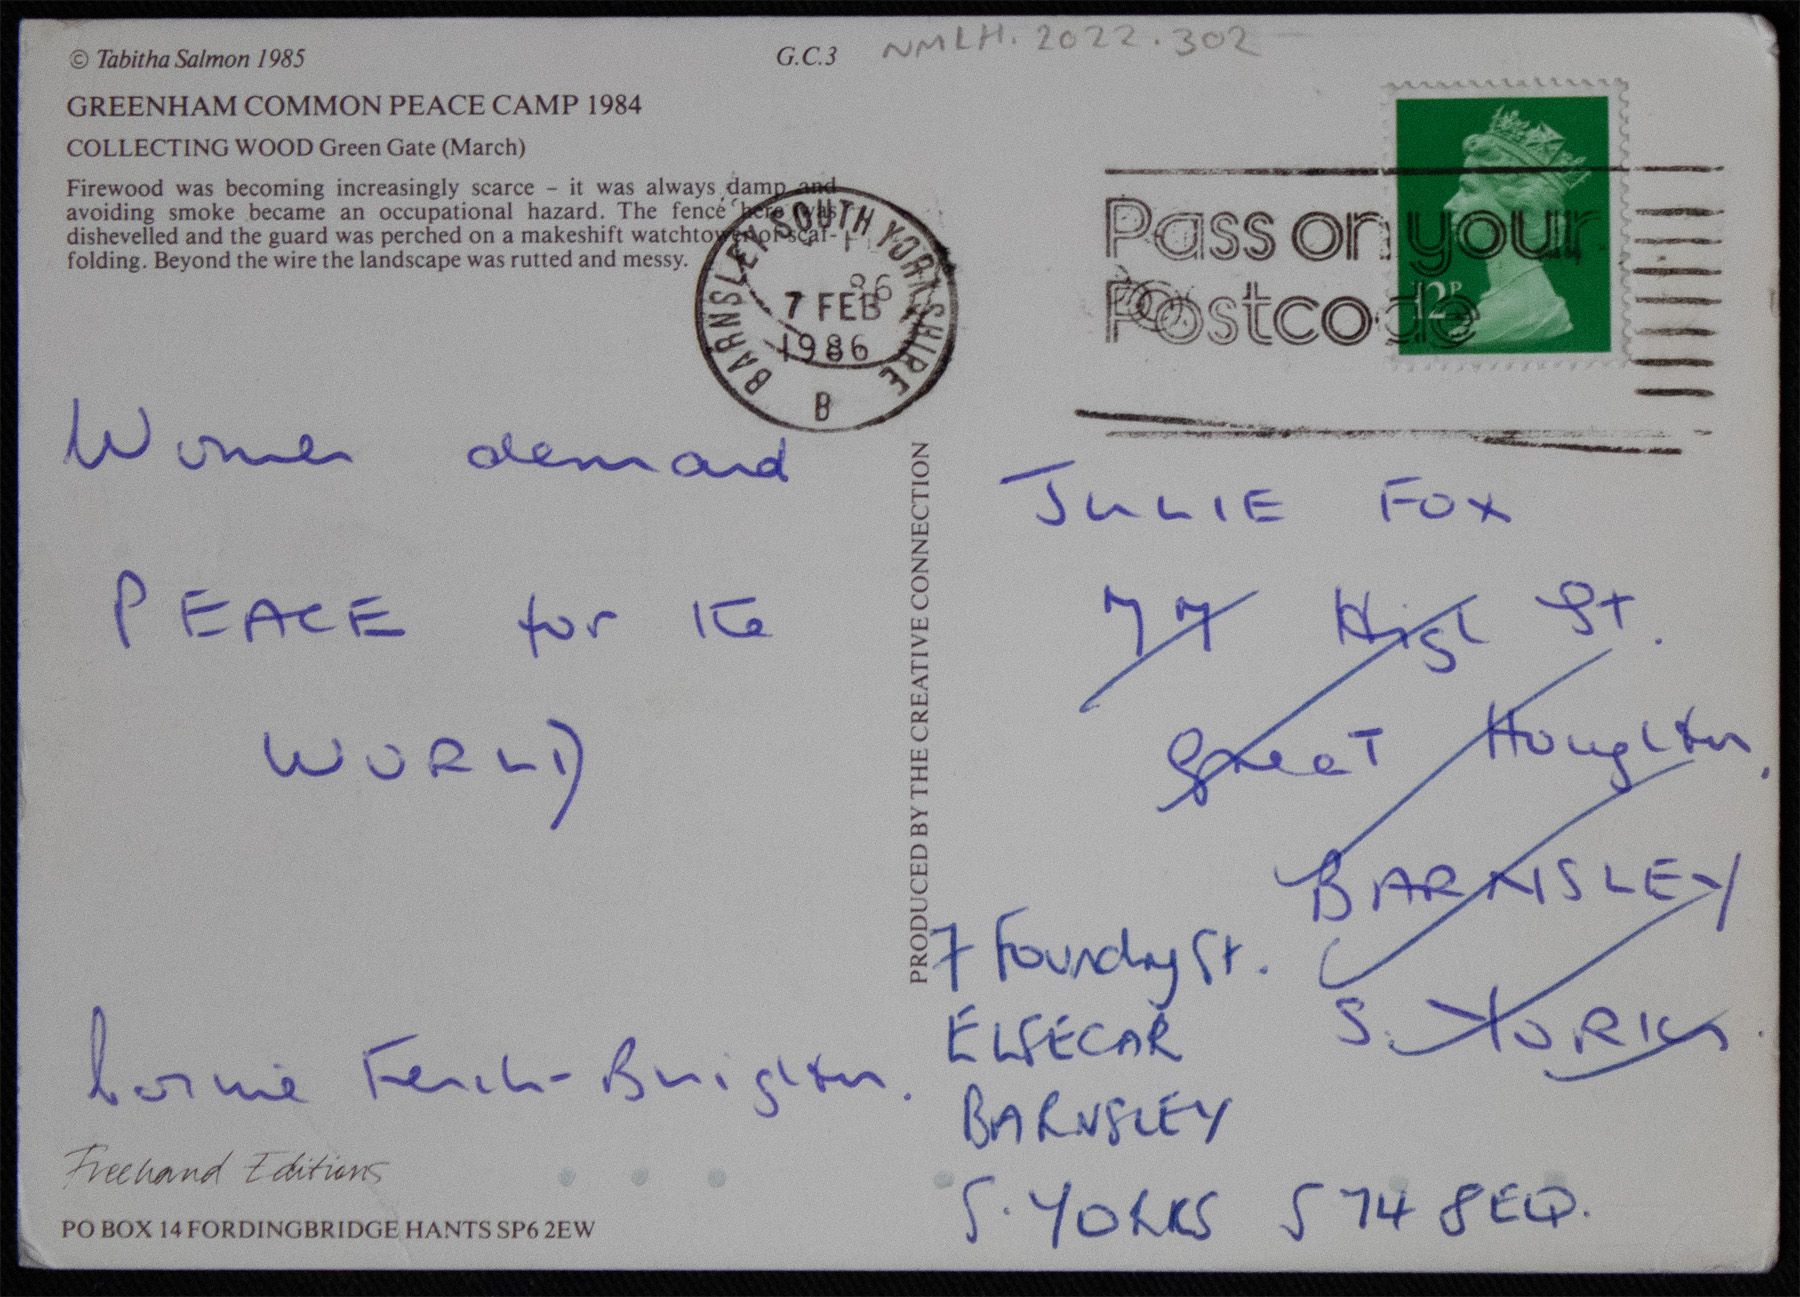 © Tabitha Salmon 1985
G.C.3
NMLH. 2022. 302
GREENHAM COMMON PEACE CAMP 1984
COLLECTING WOOD Green Gate (March)
Firewood was becoming increasingly scarce – it was always damp and
avoiding smoke became an occupational hazard. The fence here was
dishevelled and the guard was perched on a makeshift watchtower of scaf-
folding. Beyond the wire the landscape was rutted and messy.
BARNSLEY SOUTH YORKSHIRE
7 FEB
1986
B
Pass on your
Postcode
12P
Women demand
PEACE for the
WORLD
Fench-Brighton.
Freehand Editions
PO BOX 14 FORDINGBRIDGE HANTS SP6 2EW
PRODUCED BY THE CREATIVE CONNECTION
JULIE FOX
77 High St.
Great Houghton,
BARNSLEY
S. YORKS.
7 Foundry St.
ELSECAR
BARNSLEY
S. YORKS S74 8EQ.